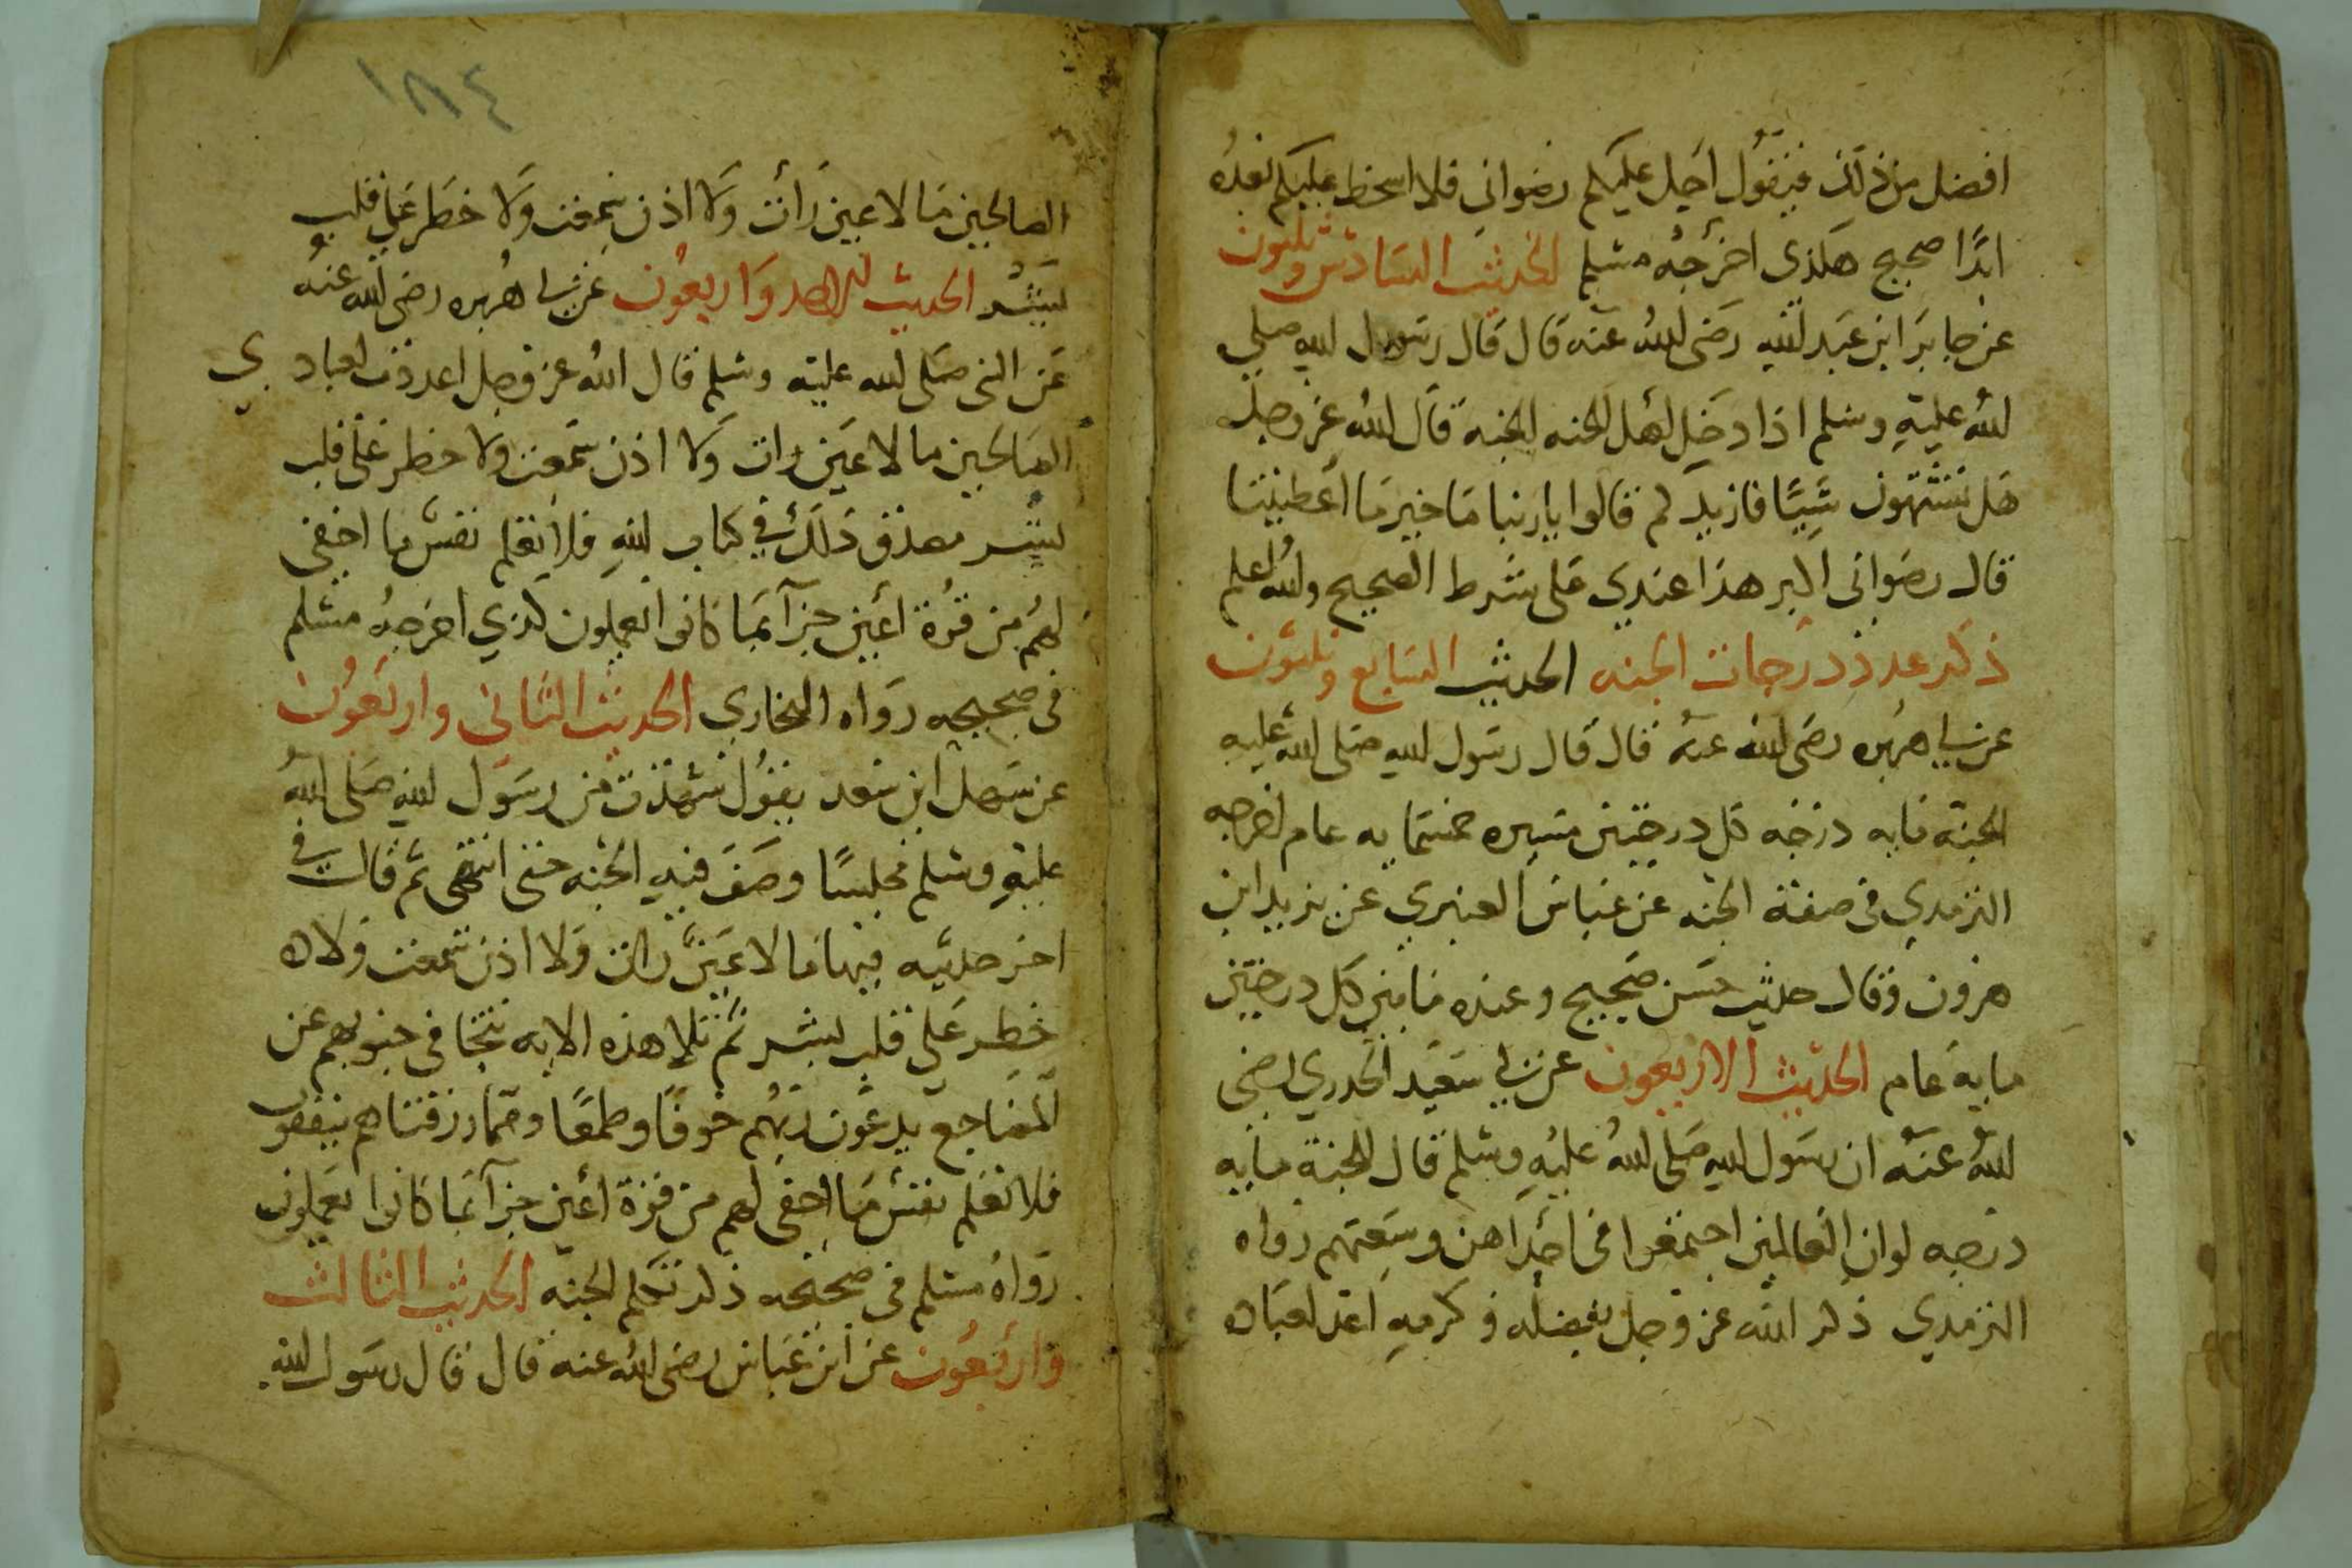 افضل من ذلك فيقول احل عليكم رضواني فلا اسخط عليكم بعده
ابدًا صحيح هكذى اخرجه مسلم الحديث السادس وثلثون
عن جابر ابن عبد لله رضى لله عنه قال قال رسول لله صلى
لله عليه وسلم اذا دخل اهل الجنه الجنة قال لله عز وجل
هل تشتهون شيًا فازيدكم قالوا يا ربنا ما خير ما أعطيتنا
قال رضوانى اكبر هذا عندي على شرط الصحيح ولله اعلم
ذكر عدد درجات الجنه الحديث السابع وثلثون
عن ابي هريره رضى لله عنه قال قال رسول لله صلى لله عليه
الجنة مايه درجه كل درجتين مسيره خمسمايه عام اخرجه
الترمدي فى صفة الجنه عن عباس العنبري عن يزيد ابن
هرون وقال حديث حسن صحيح وعنده ما بين كل درجتين
مايه عام الحديث الاربعون عن ابي سعيد الخدري رضى
لله عنه ان رسول لله صلى لله عليه وسلم قال الجنة مايه
درجه لوان العالمين اجتمعوا فى احداهن وسعتهم رواه
الترمدي ذكر الله عز وجل بفضله وكرمه اعد لعباده
١٨٤
الصالحين ما لا عين رأت ولا اذن سمعت ولا خطر على قلب
بشر الحديث الاحد واربعون عن ابي هريره رضى لله عنه
عن النبى صلى لله عليه وسلم قال الله عز وجل اعددت لعبادي
الصالحين ما لا عين رات ولا اذن سمعت ولا خطر على قلب
بشر مصدق ذلك في كتاب لله فلا تعلم نفس ما اخفي
لهم من قرة أعين جزآ بما كانوا يعملون كذي اخرجه مسلم
فى صحيحه رواه البخاري الحديث الثاني واربعون
عن سهل ابن سعد يقول شهدت من رسول لله صلى الله
عليه وسلم مجلسًا وصف فيه الجنه حتى انتهى ثم قال فى
اخر حديثه فيها ما لا عين رات ولا اذن سمعت ولا ه
خطر على قلب بشر ثم تلا هذه الايه تتجافى جنوبهم عن
المضاجع يدعون ربهم خوفًا وطمعًا ومما رزقناهم ينفقون
فلا تعلم نفس ما اخفى لهم من قرة أعين جزآ بما كانوا يعملون
رواه مسلم فى صحيحه ذكر تكلم الجنه الحديث الثالث
وأربعون عن ابن عباس رضى الله عنه قال قال رسول لله